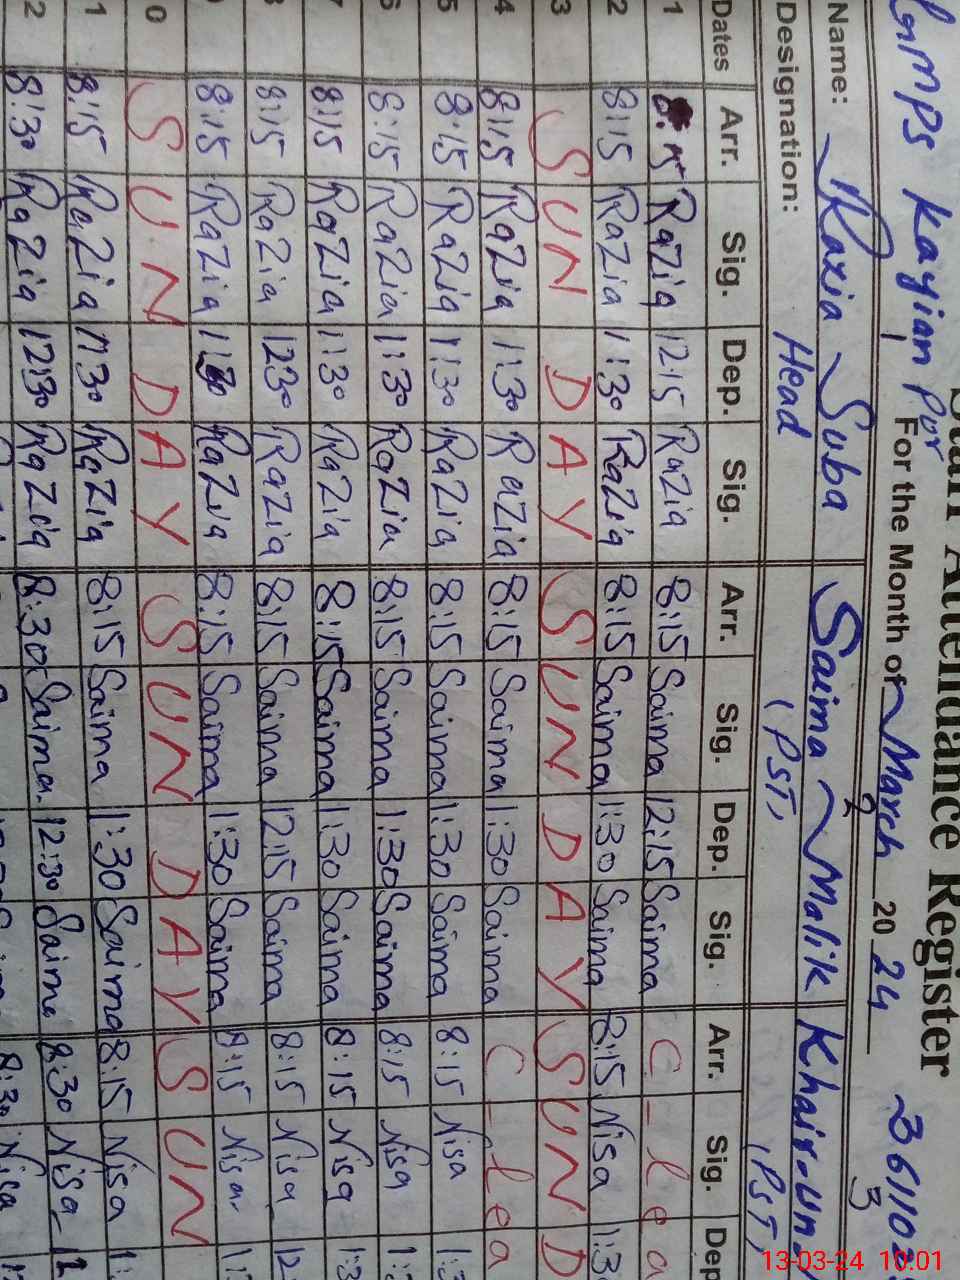 Staff Attendance Register
GMPS Kayian Por For the Month of March 2024 361102
2 3
Name: Razia Suba Saima Malik Khair-un
Designation: Head (PST) (PST)
Dates Arr. Sig. Dep. Sig. Arr. Sig. Dep. Sig. Arr. Sig. Dep
1 Razia 12:15 Razia 8:15 Saima 12:15 Saima C - lea
2 8:15 Razia 1:30 Razia 8:15 Saima 1:30 Saima 8:15 Nisa 1:3
3 SUNDAY SUNDAY SUND
4 8:15 Razia 1:30 Razia 8:15 Saima 1:30 Saima C - lea
5 8:15 Razia 1:30 Razia 8:15 Saima 1:30 Saima 8:15 Nisa 1:3
6 8:15 Razia 1:30 Razia 8:15 Saima 1:30 Saima 8:15 Nisa 1:
7 8:15 Razia 1:30 Razia 8:15 Saima 1:30 Saima 8:15 Nisa 1:3
8 8:15 Razia 12:30 Razia 8:15 Saima 12:15 Saima 8:15 Nisa 12
8:15 Razia 1:30 Razia 8:15 Saima 1:30 Saima 8:15 Nisa 1:
0 SUNDAY SUNDAY SUN
1 8:15 Razia 1:30 Razia 8:15 Saima 1:30 Saima 8:15 Nisa 1:
2 8:30 Razia 12:30 Razia 8:30 Saima 12:30 Saima 8:30 Nisa 1
8:30 Nisa
13-03-24 10:01